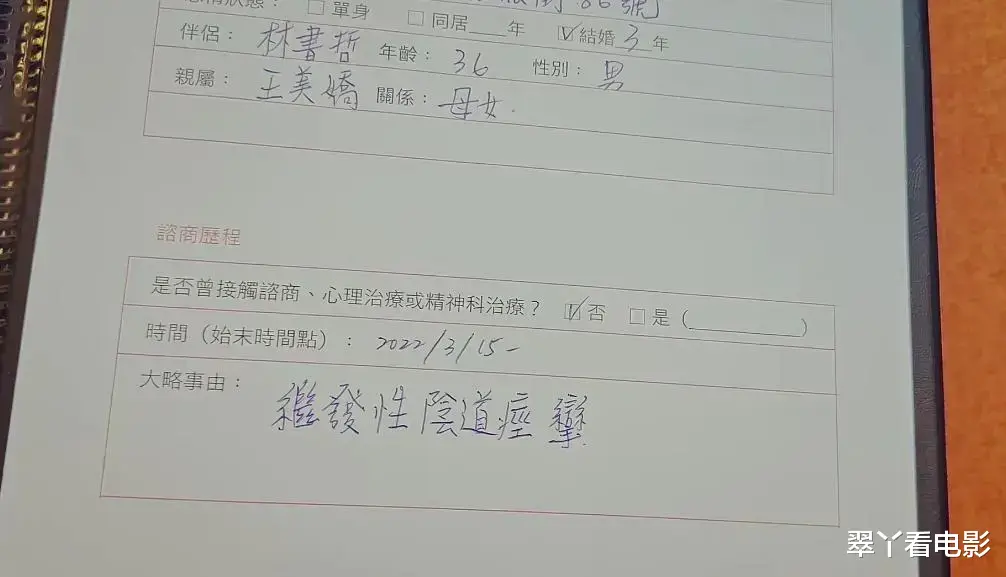 號
□ 單身 □ 同居___年 ☑ 結婚 3 年
伴侶: 林書哲 年齡: 36 性別: 男
親屬: 王美嬌 關係: 母女.
諮商歷程
是否曾接觸諮商、心理治療或精神科治療? ☑ 否 □ 是 (__________)
時間 (始末時間點) : 2022/3/15-
大略事由:
繼發性陰道痙攣
翠丫看电影